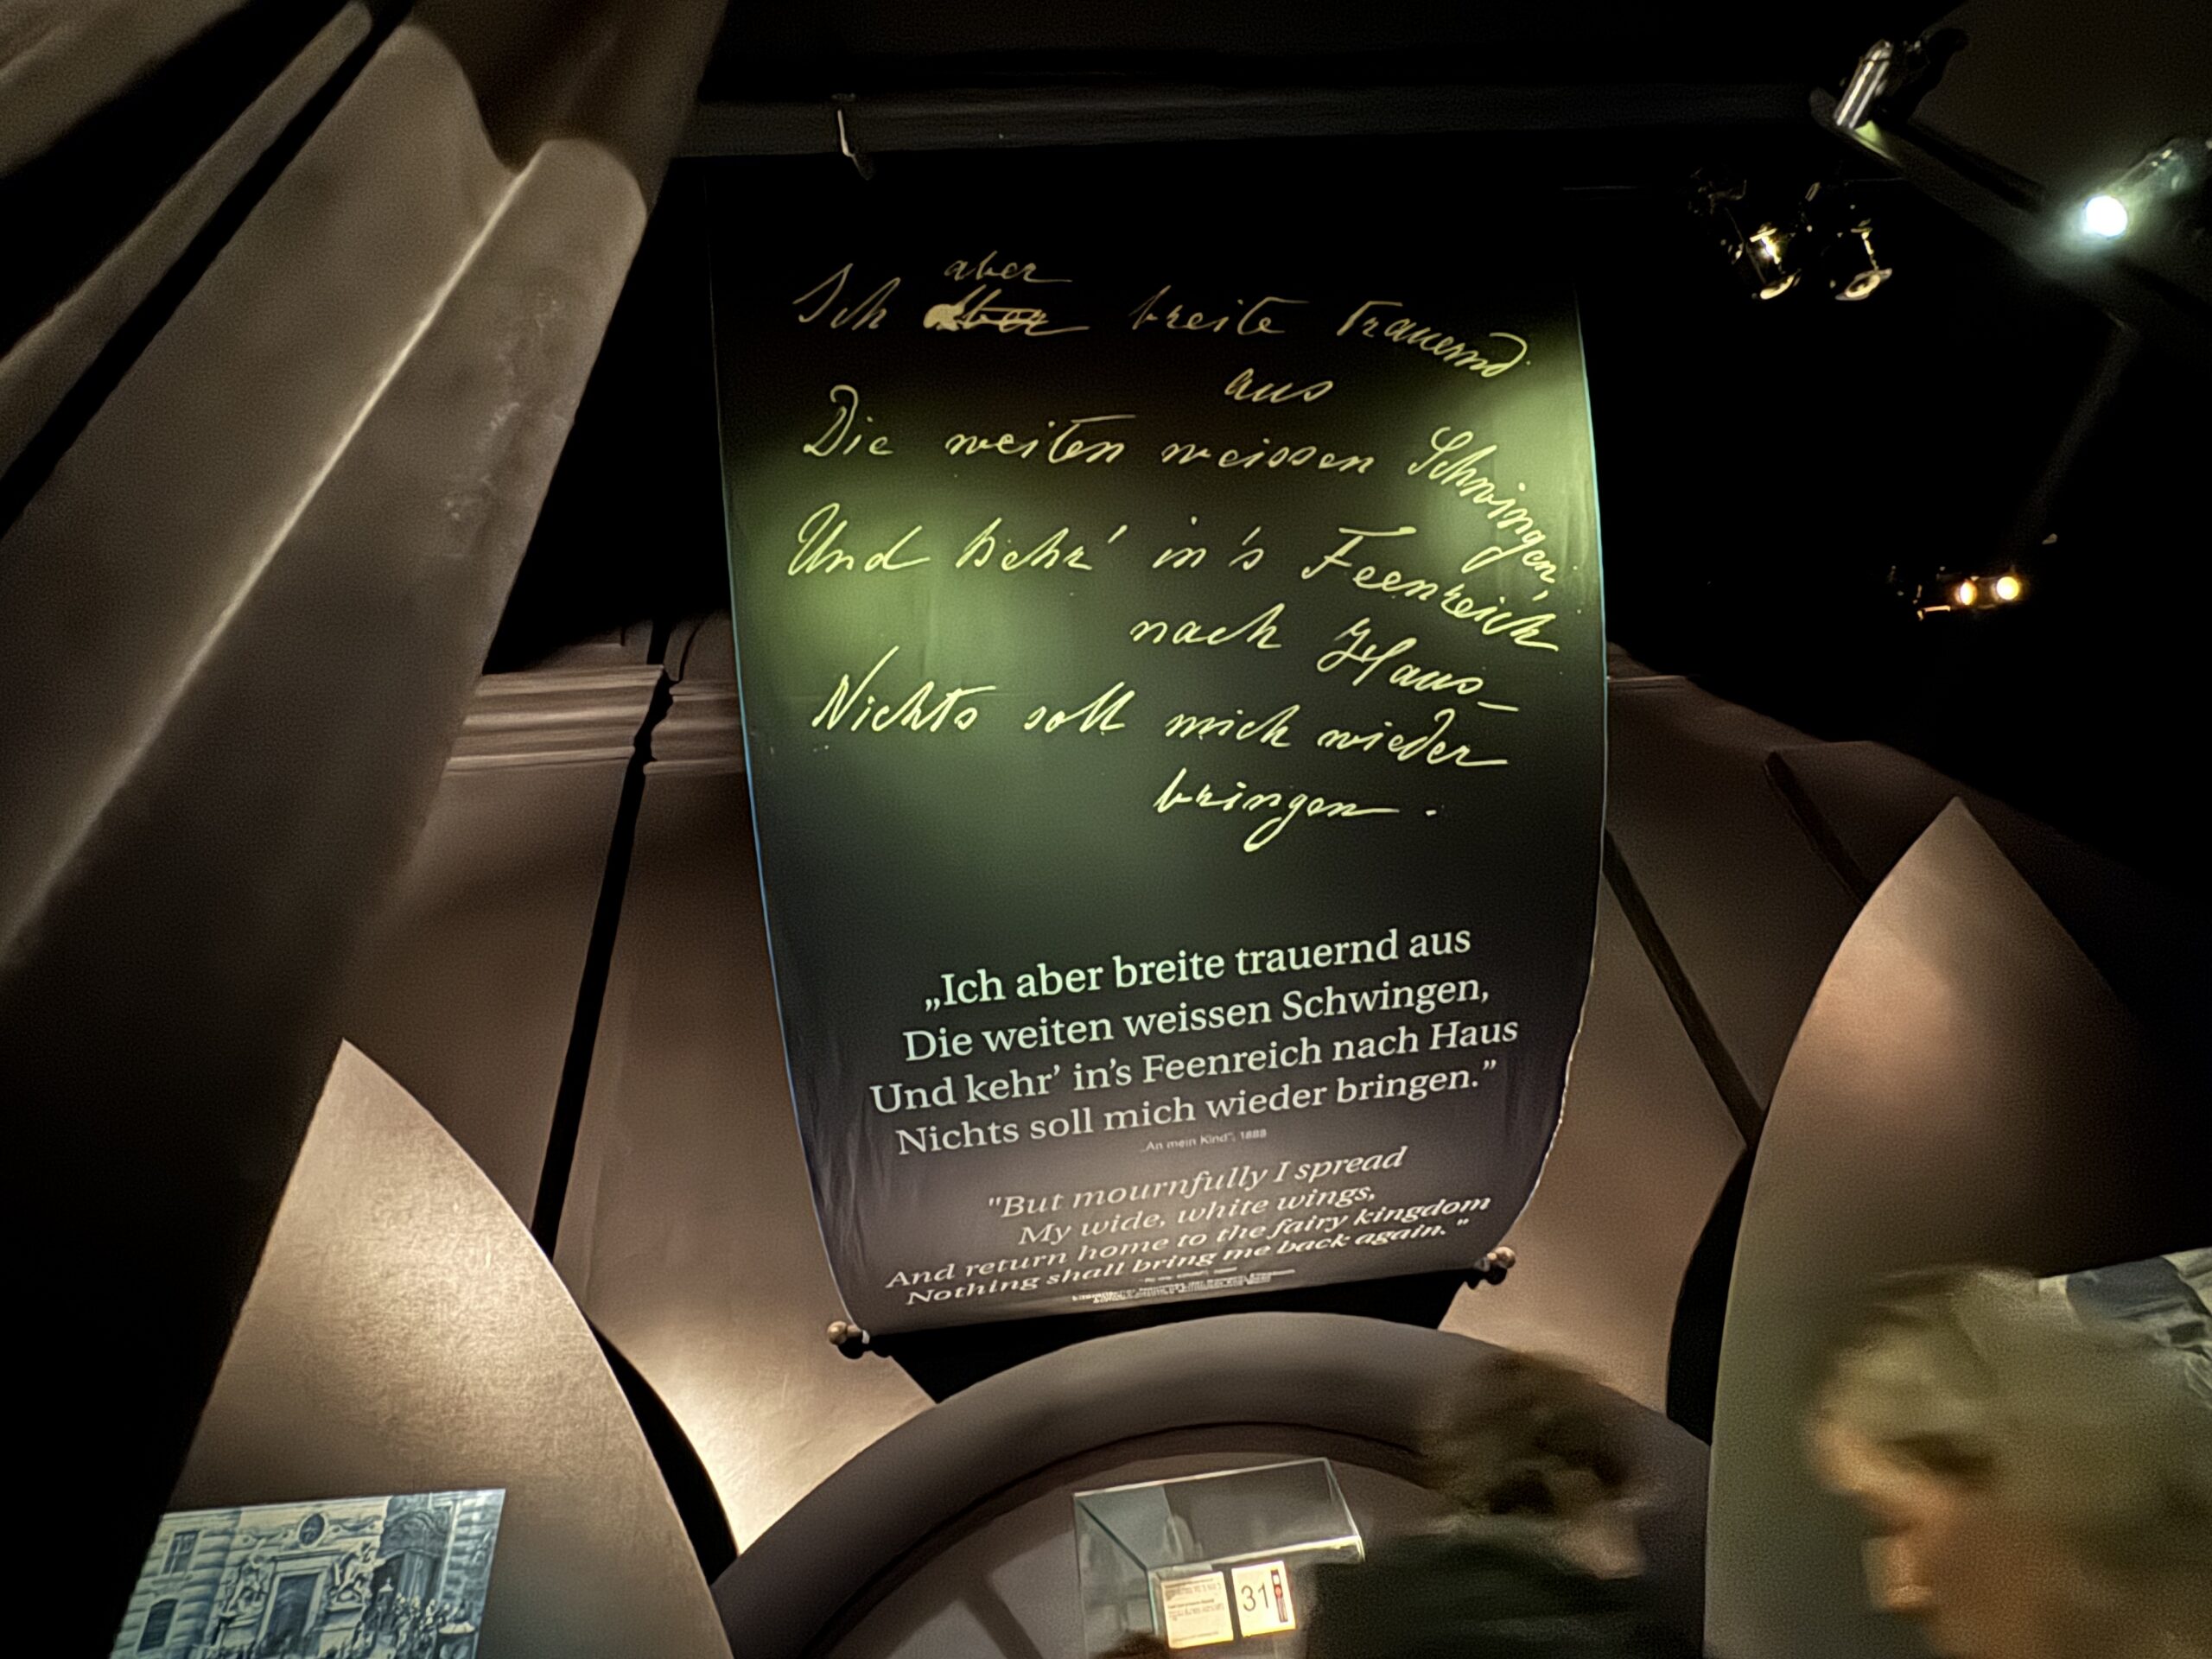 aber
Ich aber breite trauernd
aus
Die weiten weissen Schwingen,
Und kehr' in's Feenreich
nach Haus
Nichts soll mich wieder
bringen.
„Ich aber breite trauernd aus
Die weiten weissen Schwingen,
Und kehr’ in’s Feenreich nach Haus
Nichts soll mich wieder bringen.”
„An mein Kind“, 1888
"But mournfully I spread
My wide, white wings,
And return home to the fairy kingdom
Nothing shall bring me back again."
31